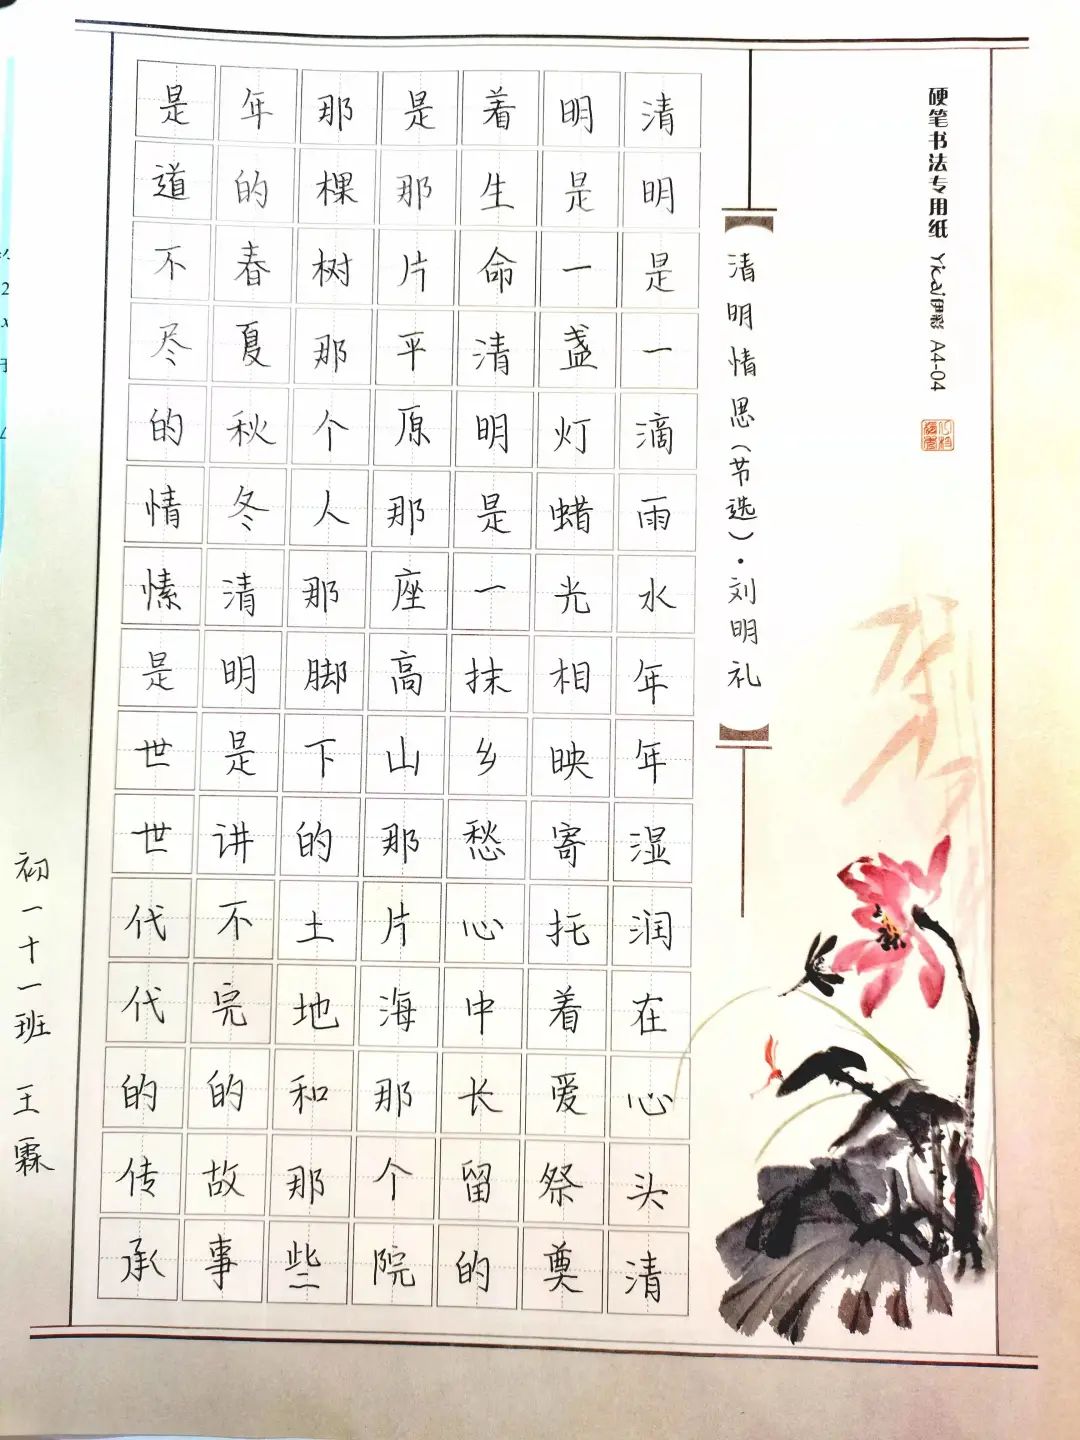 硬笔书法专用纸 Yicai伊彩 A4-04
清明情思(节选)·刘明礼
清明是一滴雨水年年湿润在心头清
明是一盏灯蜡光相映寄托着爱祭奠
着生命清明是一抹乡愁心中长留的
是那片平原那座高山那片海那个院
那棵树那个人那脚下的土地和那些
年的春夏秋冬清明是讲不完的故事
是道不尽的情愫是世世代代的传承
初一十一班 王霖